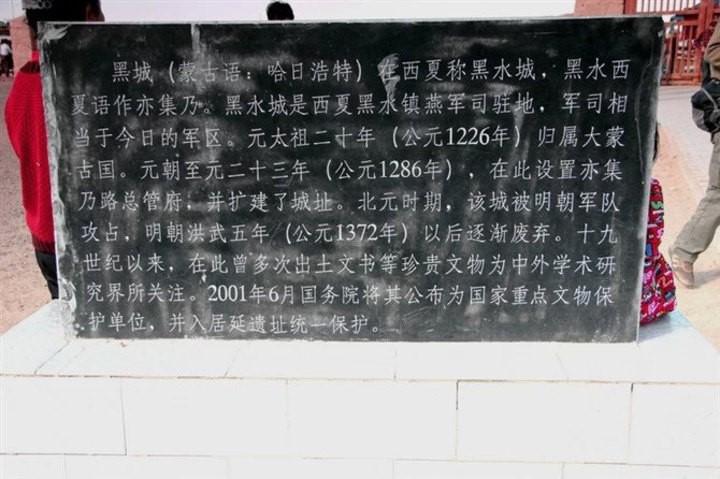 黑城（蒙古语：哈日浩特）在西夏称黑水城，黑水西
夏语作亦集乃。黑水城是西夏黑水镇燕军司驻地，军司相
当于今日的军区。元太祖二十年（公元1226年）归属大蒙
古国。元朝至元二十三年（公元1286年），在此设置亦集
乃路总管府，并扩建了城址。北元时期，该城被明朝军队
攻占，明朝洪武五年（公元1372年）以后逐渐废弃。十九
世纪以来，在此曾多次出土文书等珍贵文物为中外学术研
究界所关注。2001年6月国务院将其公布为国家重点文物保
护单位，并入居延遗址统一保护。